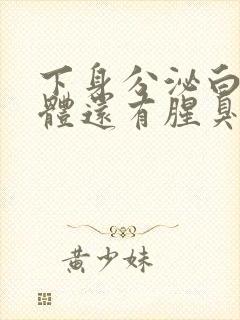 下身分泌白
體還有腥臭
黃少妹